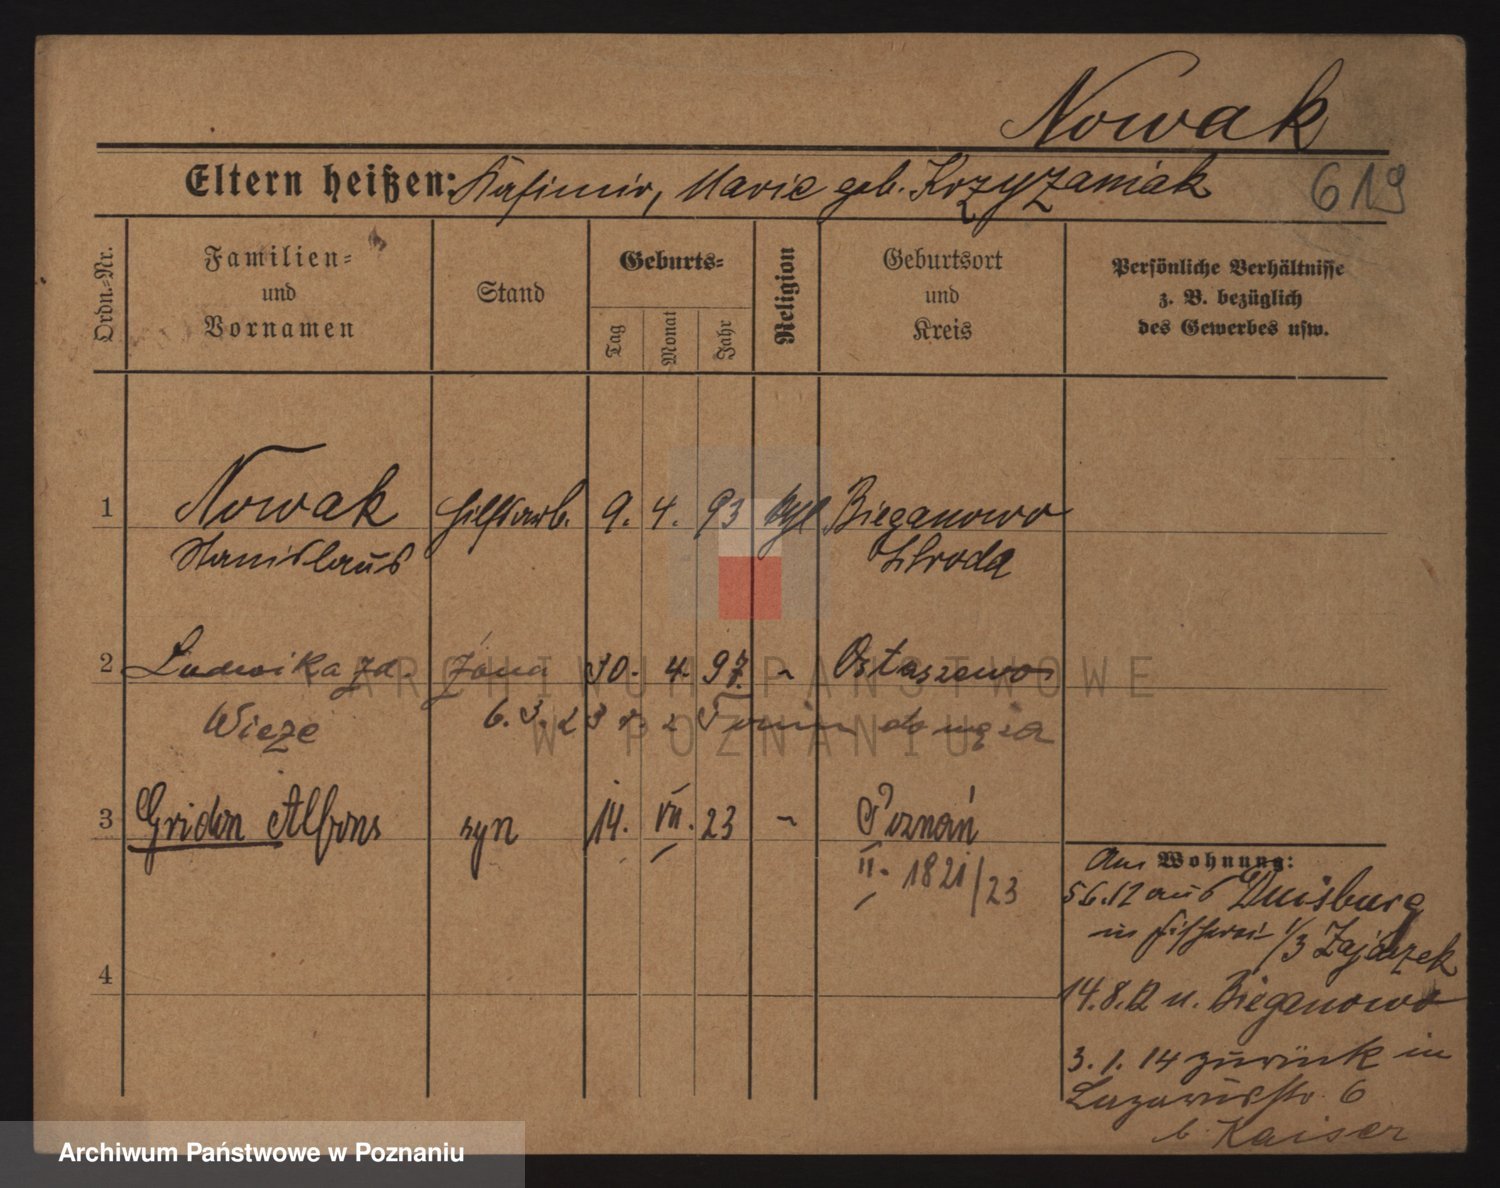 Nowak
Eltern heißen: Kasimir, Marie geb. Krzyzaniak
619
Ordn.-Nr.
Familien- und Vornamen
Stand
Geburts-
Tag
Monat
Jahr
Religion
Geburtsort und Kreis
Persönliche Verhältnisse z. B. bezüglich des Gewerbes usw.
1 Nowak Hilfsarb. 9. 4. 93 kgl Bieganowo
Stanislaus Schroda
2 Ludwika zd. żona 30. 4. 97. Ostaszewo
Wieze 6. 3. 23 r. z Toruń
3 Gridon Alfons syn 14. VII. 23 Poznań
II. 1821/23
4
Wohnung:
5.6.12 aus Duisburg
in Fischerei 1/3 Zajaczek
14.8.12 n. Bieganowo
3. 1. 14 zurück in
Lazarusstr. 6
b. Kaiser
ARCHIWUM PAŃSTWOWE
W POZNANIU
Archiwum Państwowe w Poznaniu